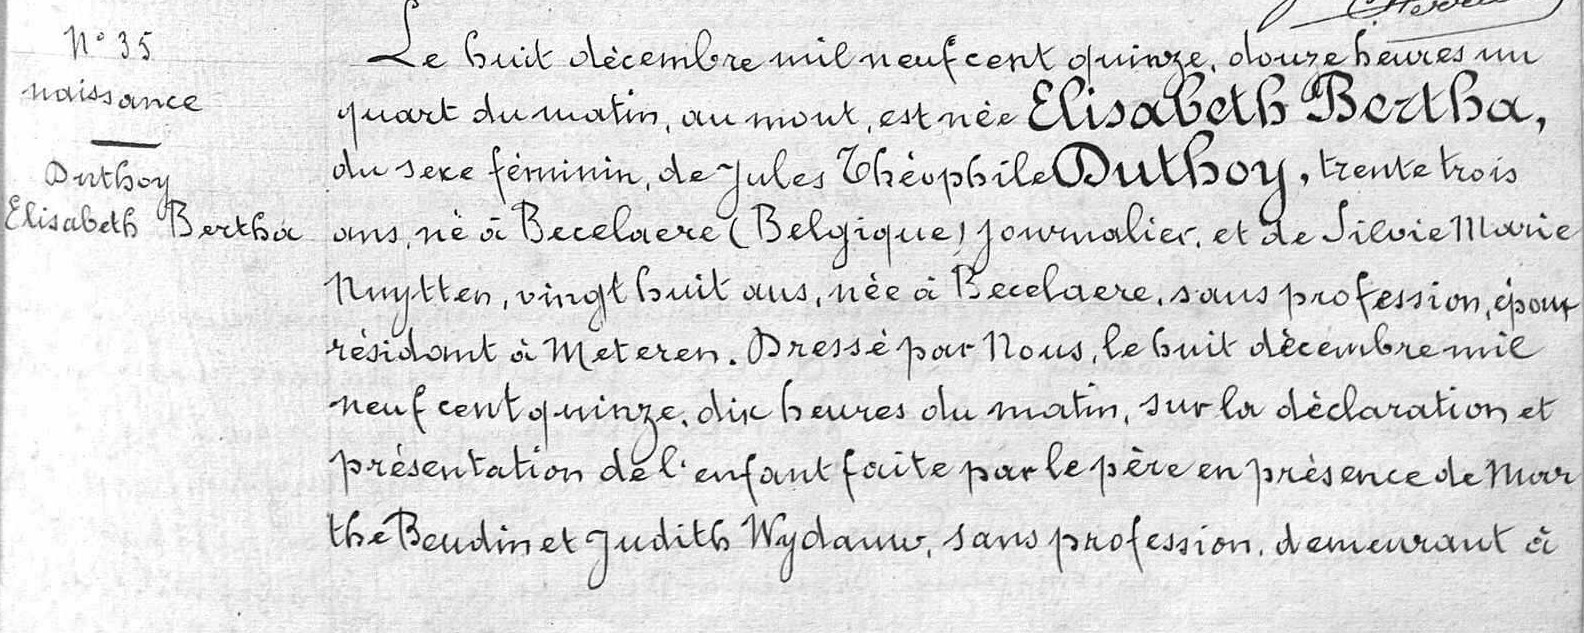 N° 35
naissance
Duthoy
Elisabeth Bertha
Le huit décembre mil neuf cent quinze, douze heures un
quart du matin, au mont, est née Elisabeth Bertha,
du sexe féminin, de Jules Théophile Duthoy, trente trois
ans, né à Becelaere (Belgique) journalier, et de Silvie Marie
Nuytten, vingt huit ans, née à Becelaere, sans profession, époux
résidant à Meteren. Dressé par Nous, le huit décembre mil
neuf cent quinze, dix heures du matin, sur la déclaration et
présentation de l'enfant faite par le père en présence de Mar
the Beudin et Judith Wydauw, sans profession, demeurant à